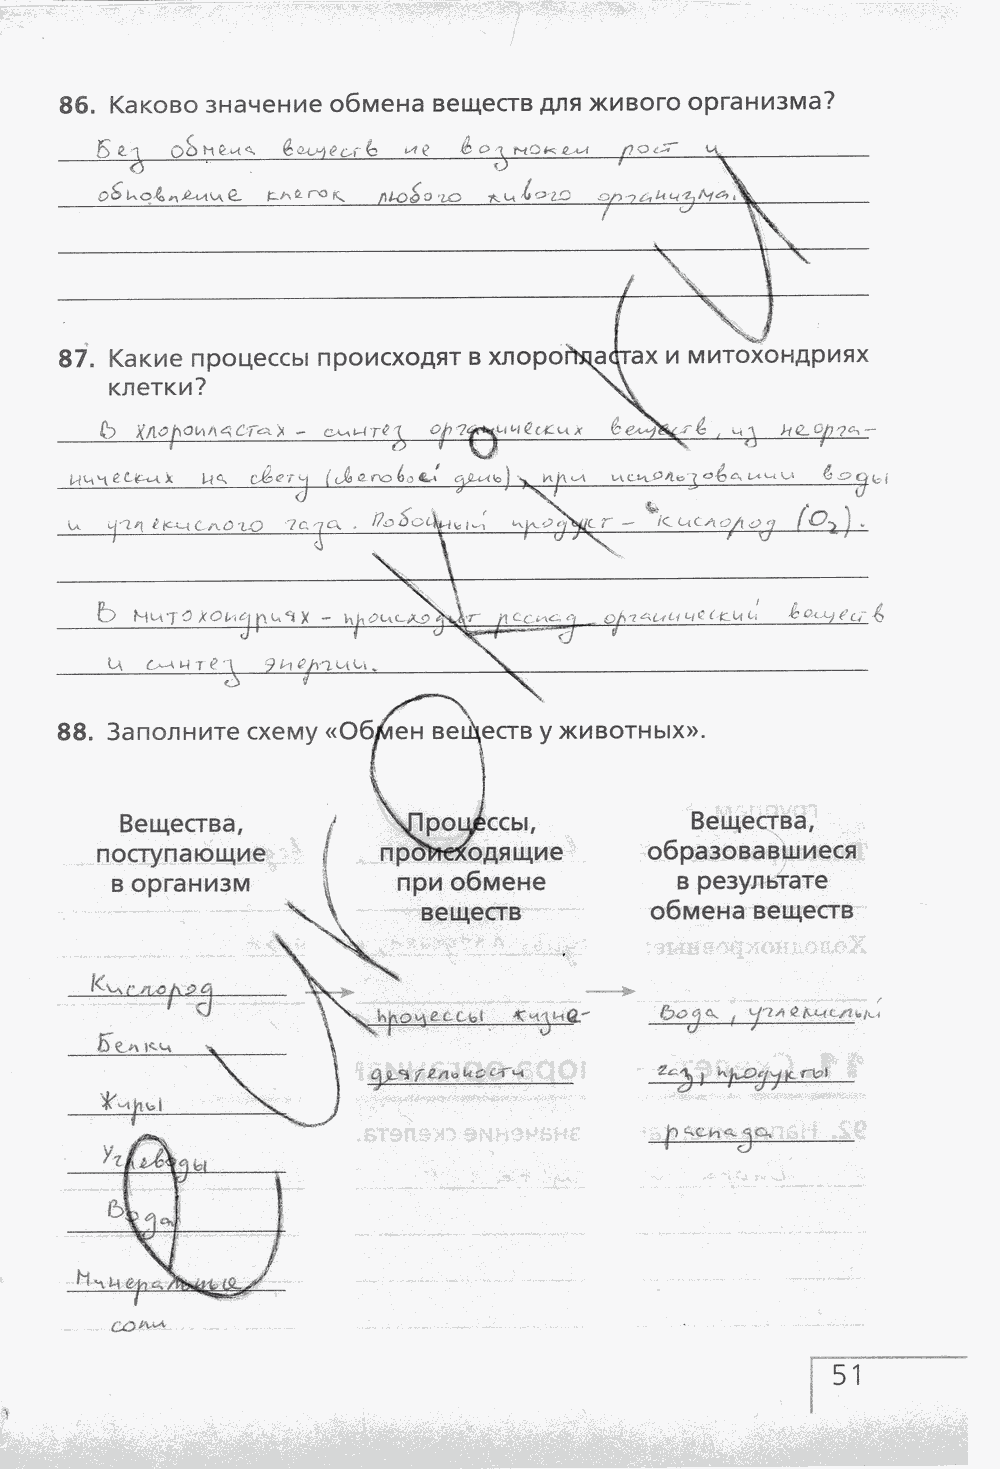 86. Каково значение обмена веществ для живого организма?
Без обмена веществ не возможен рост и
обновление клеток любого живого организма.
87. Какие процессы происходят в хлоропластах и митохондриях
клетки?
В хлоропластах – синтез органических веществ, из неорга-
нических на свету (световой день), при использовании воды
и углекислого газа. Побочный продукт – кислород (O₂).
В митохондриях – происходит распад органический веществ
и синтез энергии.
88. Заполните схему «Обмен веществ у животных».
Вещества,
поступающие
в организм
Процессы,
происходящие
при обмене
веществ
Вещества,
образовавшиеся
в результате
обмена веществ
Кислород
Белки
Жиры
Углеводы
Вода
Минеральные
соли
процессы жизне-
деятельности
Вода, углекислый
газ, продукты
распада
51